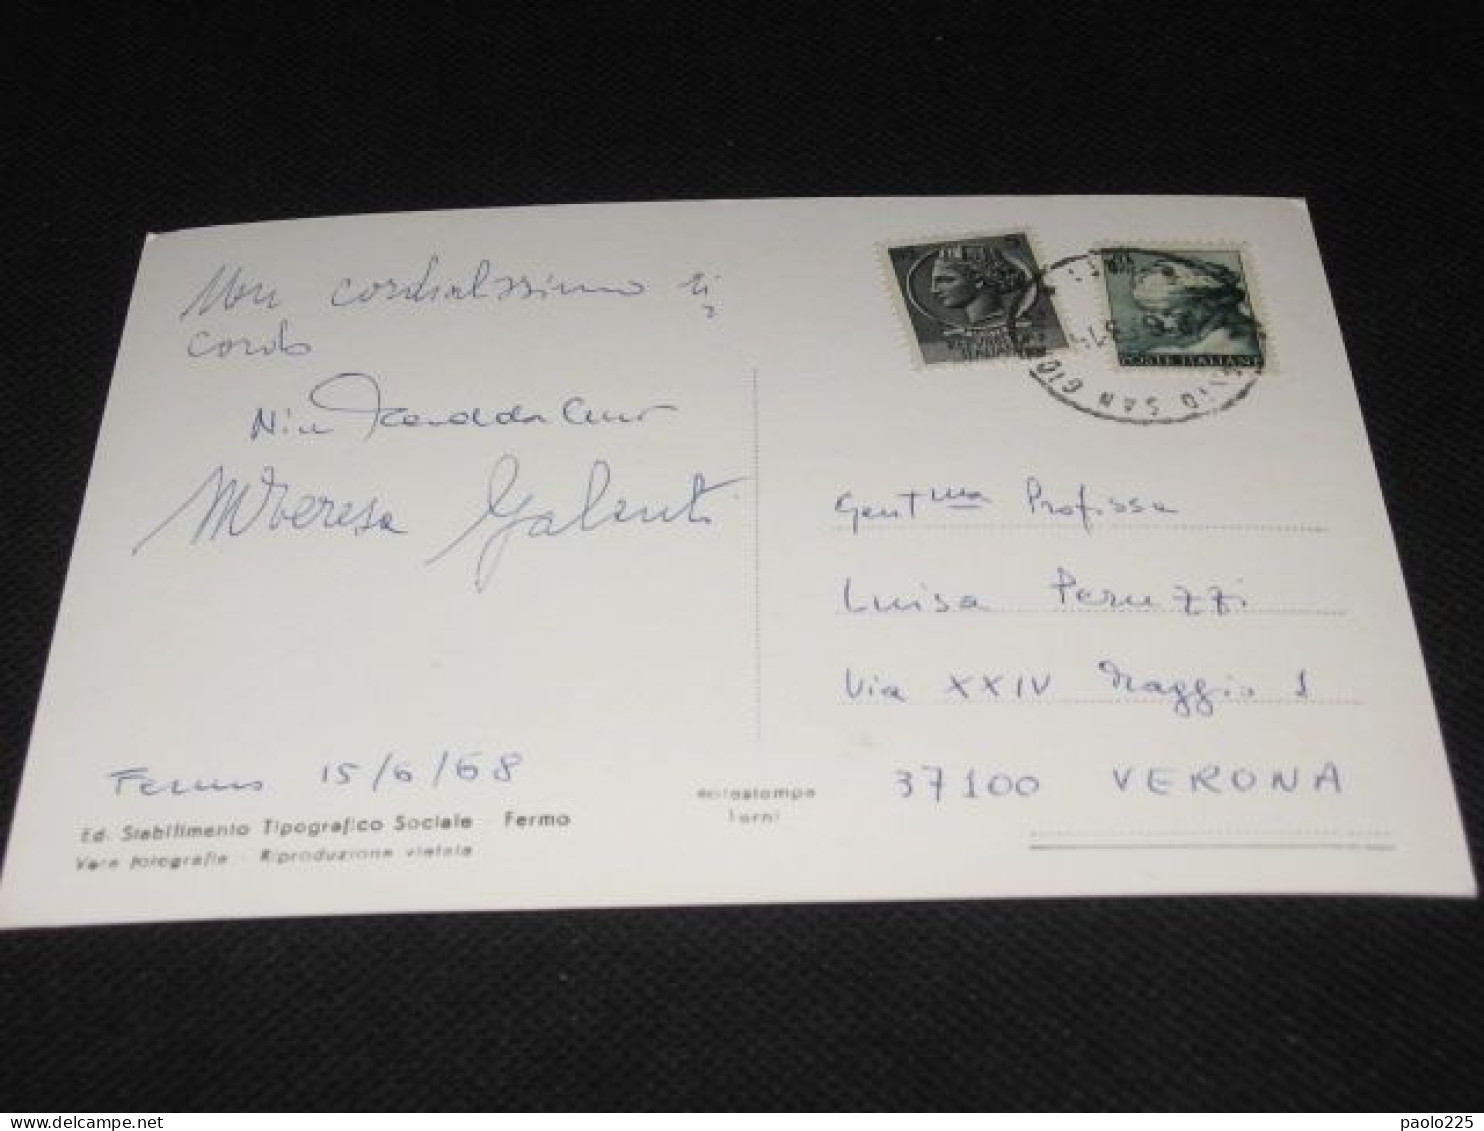 Un cordialissimo ri
cordo
M Teresa Galanti
Fermo 15/6/68
Ed. Stabilimento Tipografico Sociale - Fermo
Vera fotografia - Riproduzione vietata
Rotostampa
Terni
POSTE ITALIANE
SAN GIO
Gent.ma Prof.ssa
Luisa Peruzzi
Via XXIV Maggio 1
37100 VERONA
delcampe.net
paolo225